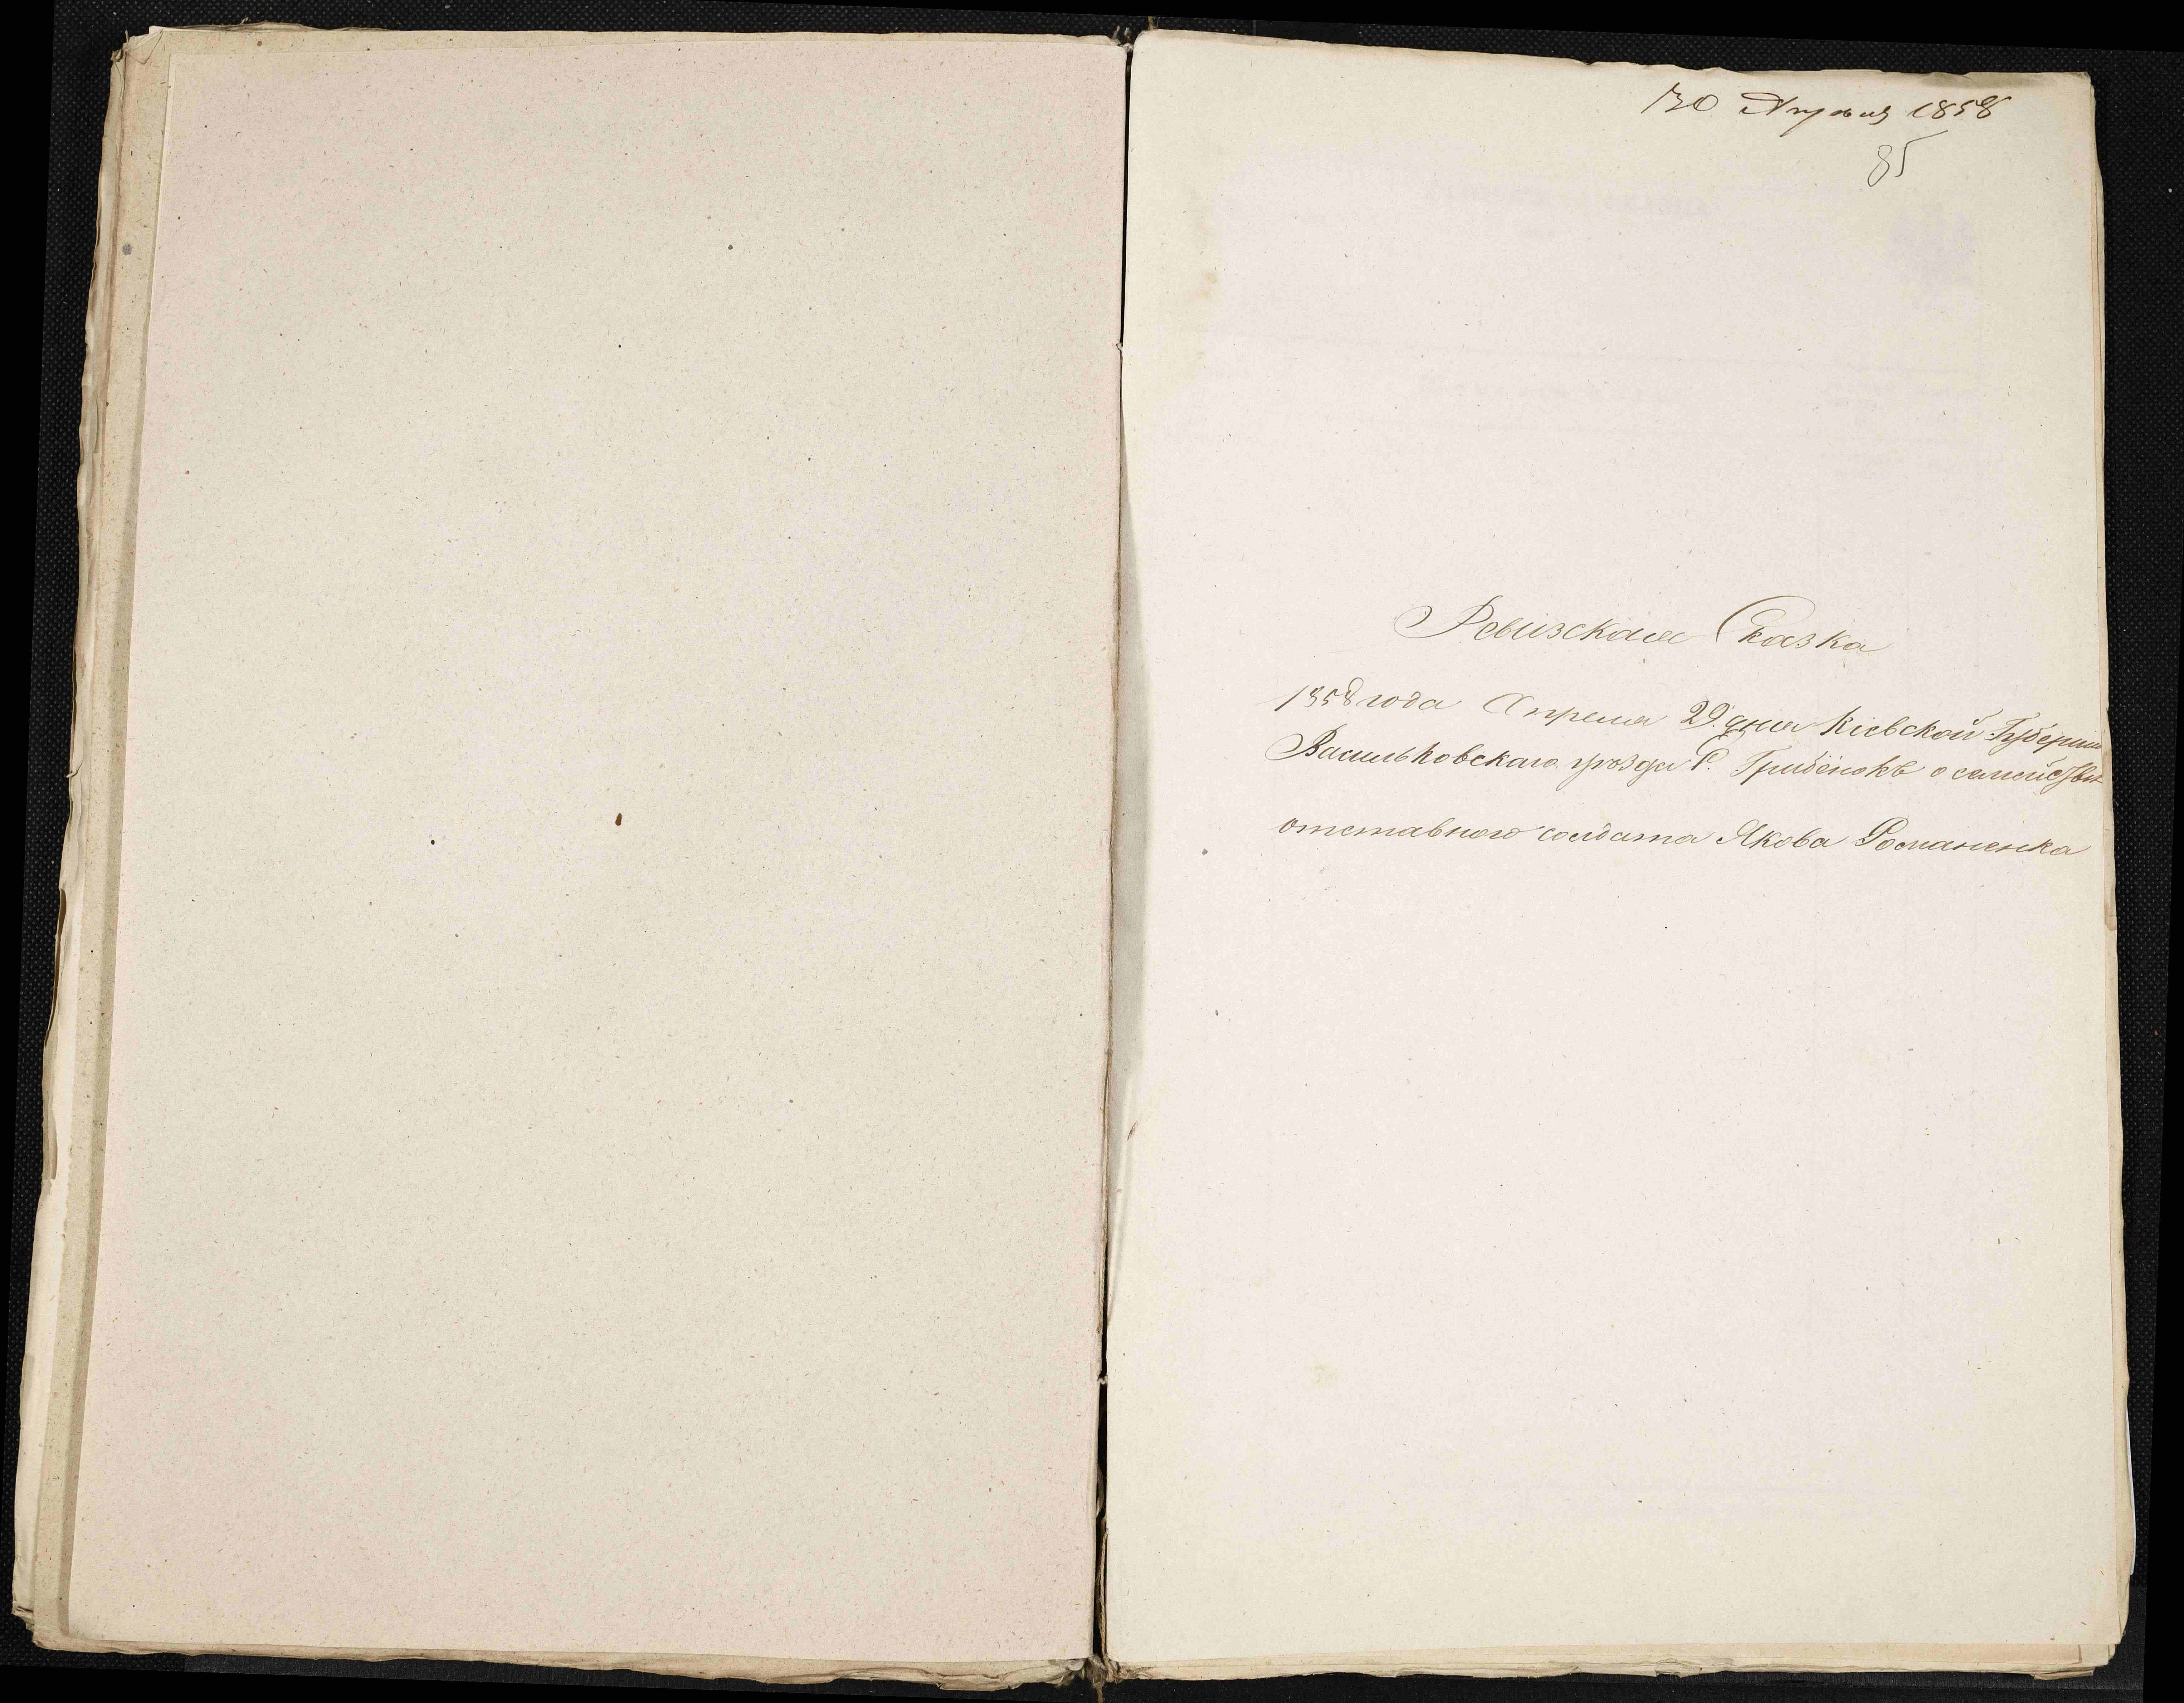 30 Апреля 1858
85
Ревизская Сказка
1858 года Апреля 29 дня Кіевской Губерніи
Васильковскаго уѣзда С. Гребёнокъ о семействѣ
отставного солдата Якова Романенка